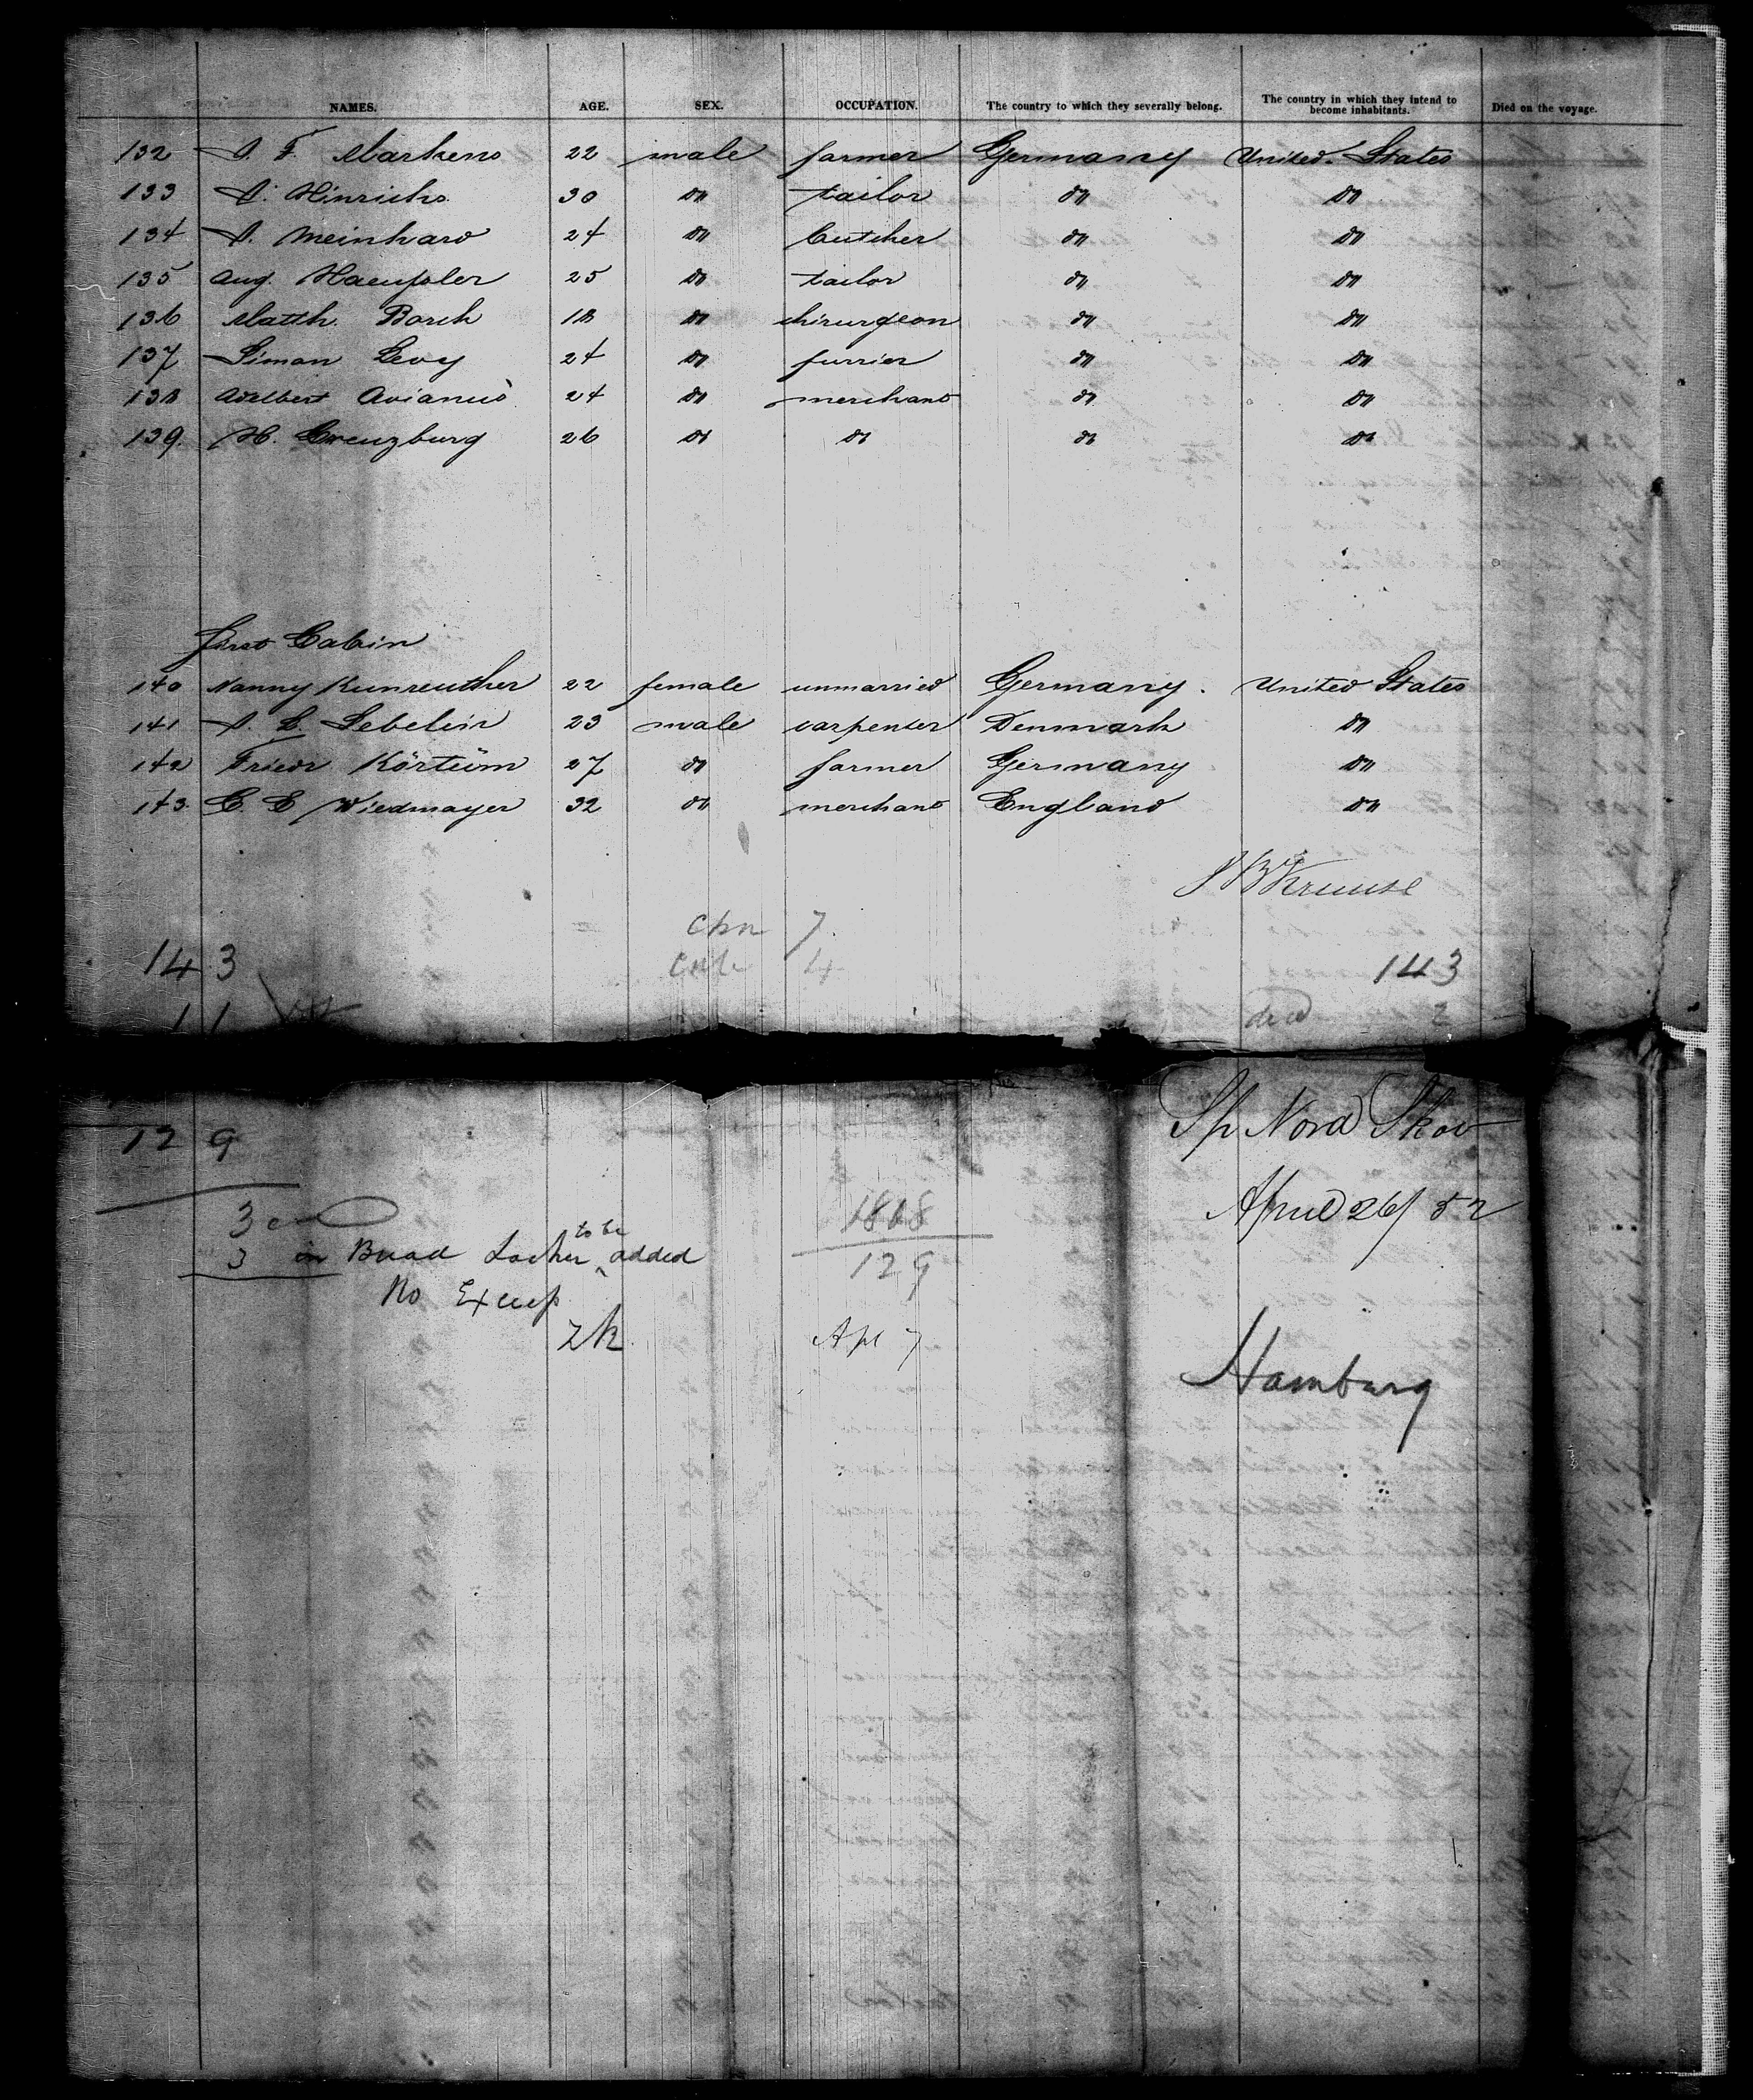 NAMES. AGE. SEX. OCCUPATION. The country to which they severally belong. The country in which they intend to become inhabitants. Died on the voyage.
132 J. F. Markens 22 male farmer Germany United States
133 J. Hinrichs 30 do tailor do do
134 J. Meinhard 24 do butcher do do
135 Aug. Haeusler 25 do tailor do do
136 Matth. Borch 18 do chirurgeon do do
137 Simon Levy 24 do furrier do do
138 Adelbert Avianus 24 do merchant do do
139. H. Creuzburg 26 do do do do
first Cabin
140 Nanny Kunreuther 22 female unmarried Germany. United States
141 J. L. Sebelin 23 male carpenter Denmark do
142 Friedr Körtüm 27 do farmer Germany do
143. C. E Wiedmayer 32 do merchant England do
J B Kruuse
chn 7.
143 4 143
11 died 2
129 Sp Nord Skov
April 26/52
3 1868
3 in Broad to be added 129
No Excep
Apl 7
Hamburg